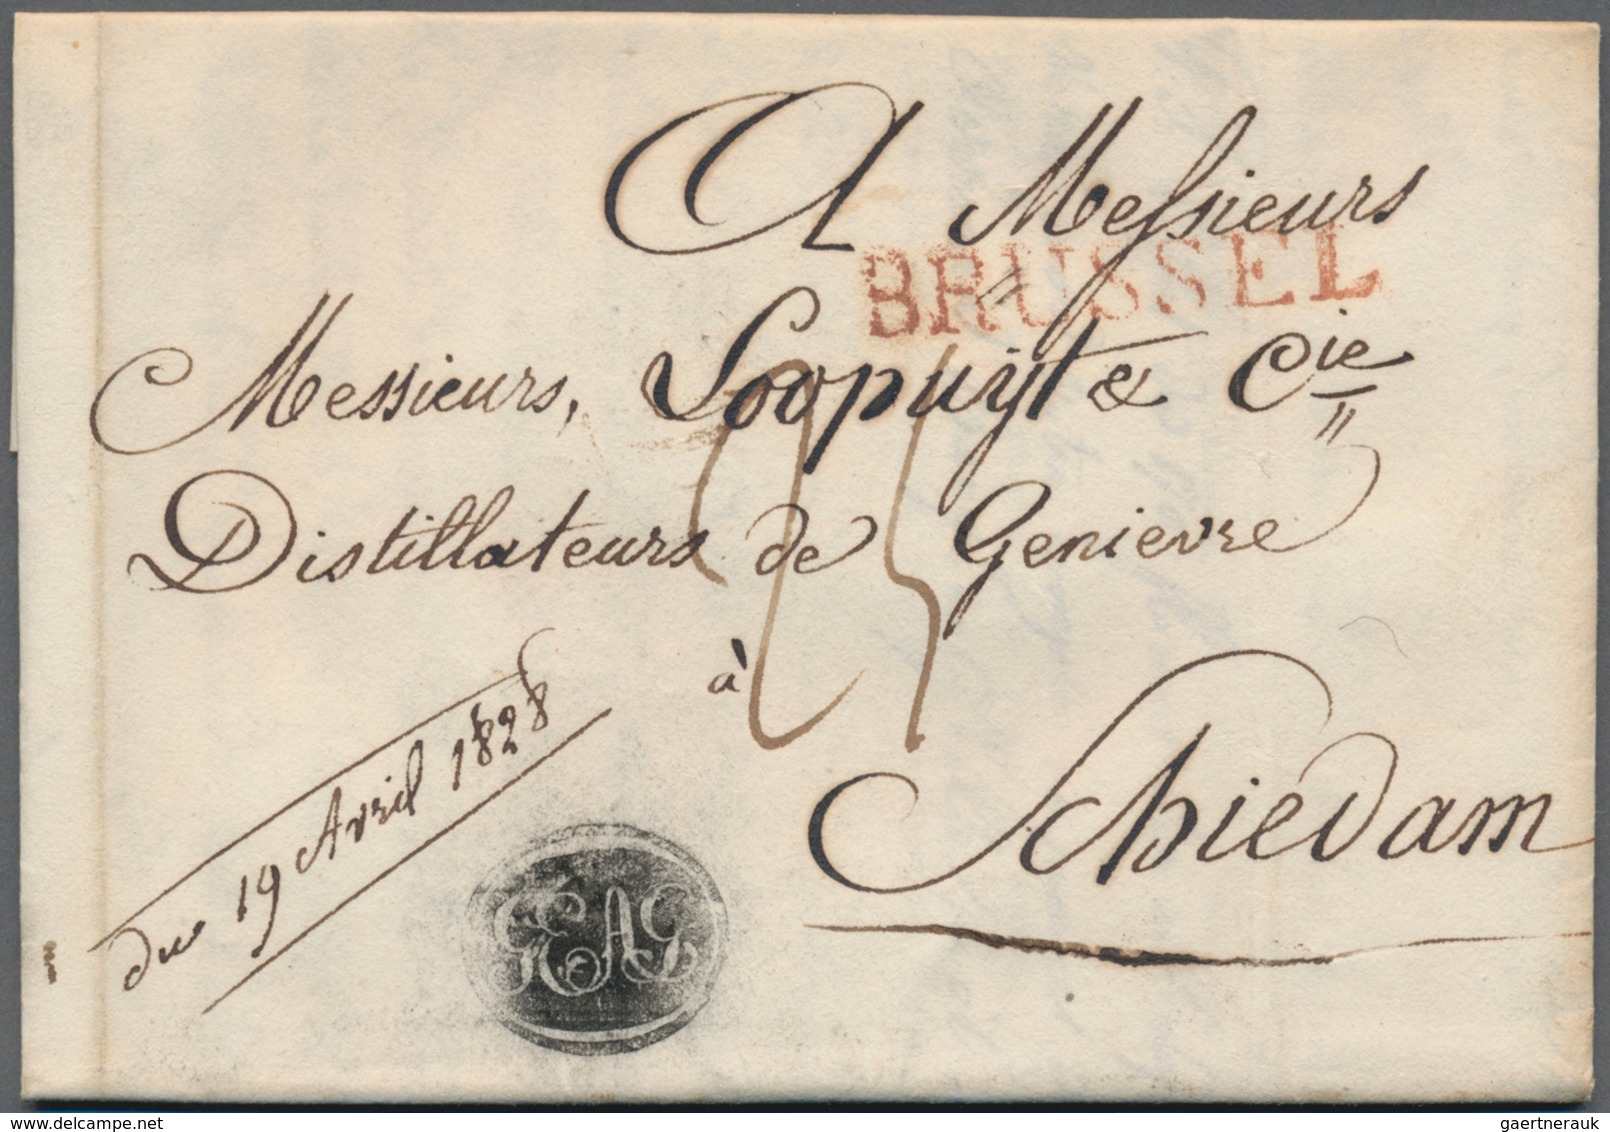 A Messieurs
BRUSSEL
Messieurs, Loopuyt & Cie
Distillateurs de Genievre
à
Schiedam
du 19 Avril 1828
gaertnerauk